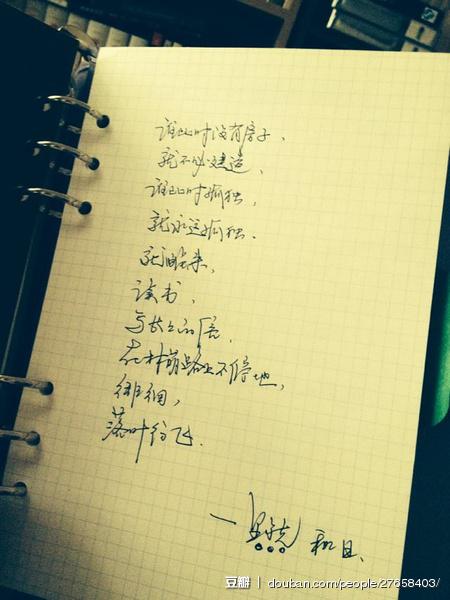 谁此时没有房子、
就不必建造、
谁此时孤独,
就永远孤独.
就醒来,
读书、
写长长的信、
在林荫路上不停地,
徘徊,
落叶纷飞.
豆瓣 | douban.com/people/27658403/